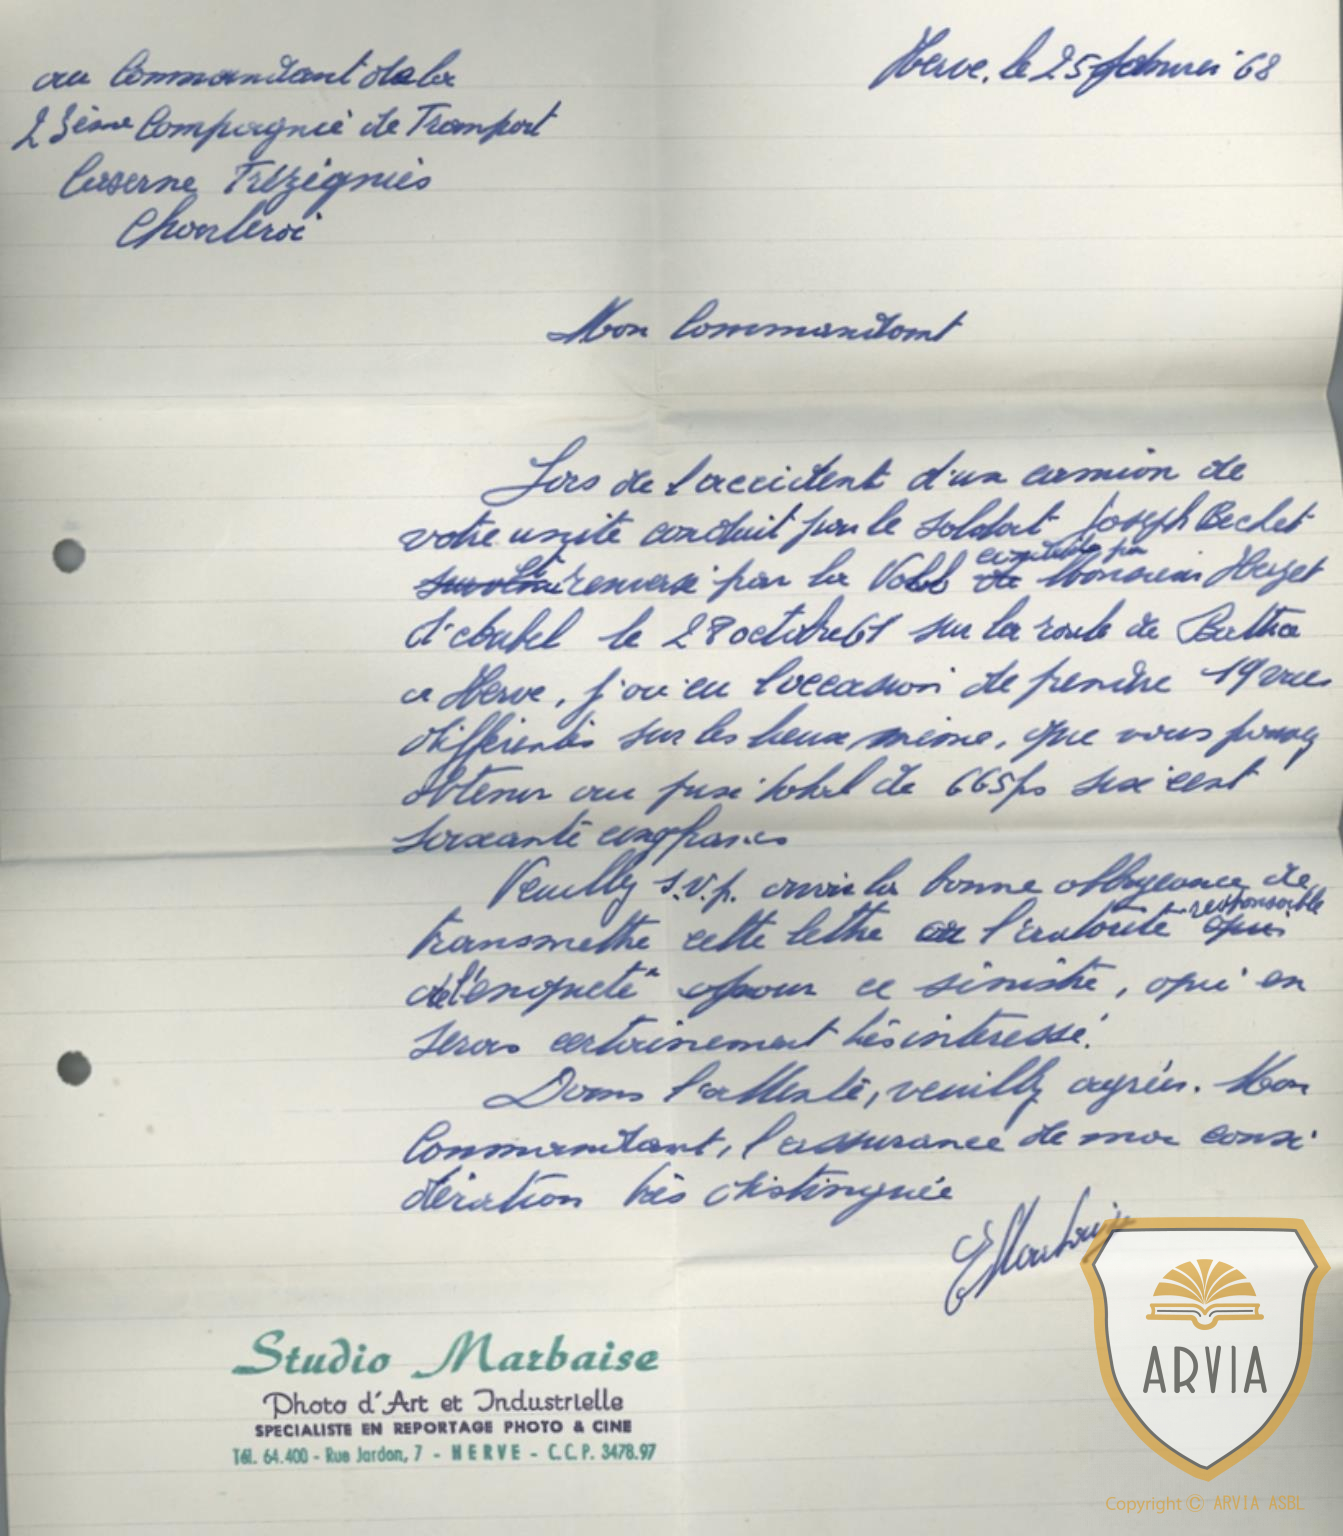 au Commandant de la
23ème Compagnie de Transport
Caserne Trézégnies
Charleroi
Herve, le 25 février 68
Mon Commandant
Lors de l'accident d'un camion de
votre unité conduit par le soldat Joseph Bechet
et renversé par la conduite par Monsieur Herzet
le 28 octobre 67 sur la route de Battice
a Herve, j'ai eu l'occasion de prendre 19 vues
différentes sur les lieux même, que vous pouvez
obtenir au prix total de 665 frs six cent
soixante cinq francs
Veuillez s.v.p. avoir la bonne obligeance de
transmettre cette lettre a l'autorité responsable
de l'enquête pour ce sinistre, qui en
seras certainement très interessé.
Dans l'attente, veuillez agréer. Mon
Commandant, l'assurance de ma consi
dération très distinguée
Studio Marbaise
Photo d'Art et Industrielle
SPECIALISTE EN REPORTAGE PHOTO & CINE
Tél. 64.400 - Rue Jardon, 7 - HERVE - C.C.P. 3478.97
ARVIA
Copyright © ARVIA ASBL